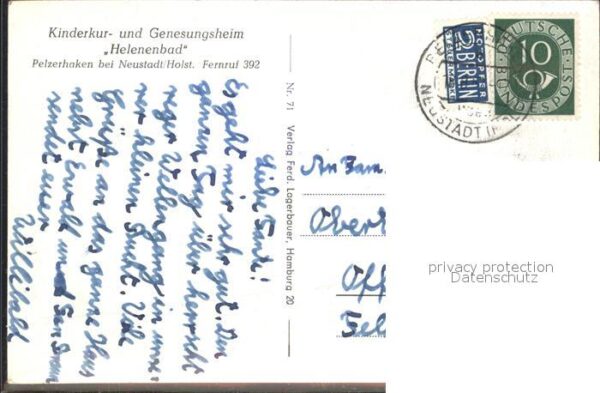 Kinderkur- und Genesungsheim
„Helenenbad"
Pelzerhaken bei Neustadt/Holst. Fernruf 392
Liebe Tante!
Es geht mir sehr gut. Den
ganzen Tag über herrscht
reger Wellengang in unse-
rer kleinen Bucht. Viele
Grüße an das ganze Haus
nebst Ewald und
sendet euer
Nr. 71 Verlag Ferd. Lagerbauer, Hamburg 20
NOTOPFER
2 BERLIN
STEUERMARKE
DEUTSCHE
BUNDESPOST
10
NEUSTADT
An Fam.
Obert
Off
privacy protection
Datenschutz